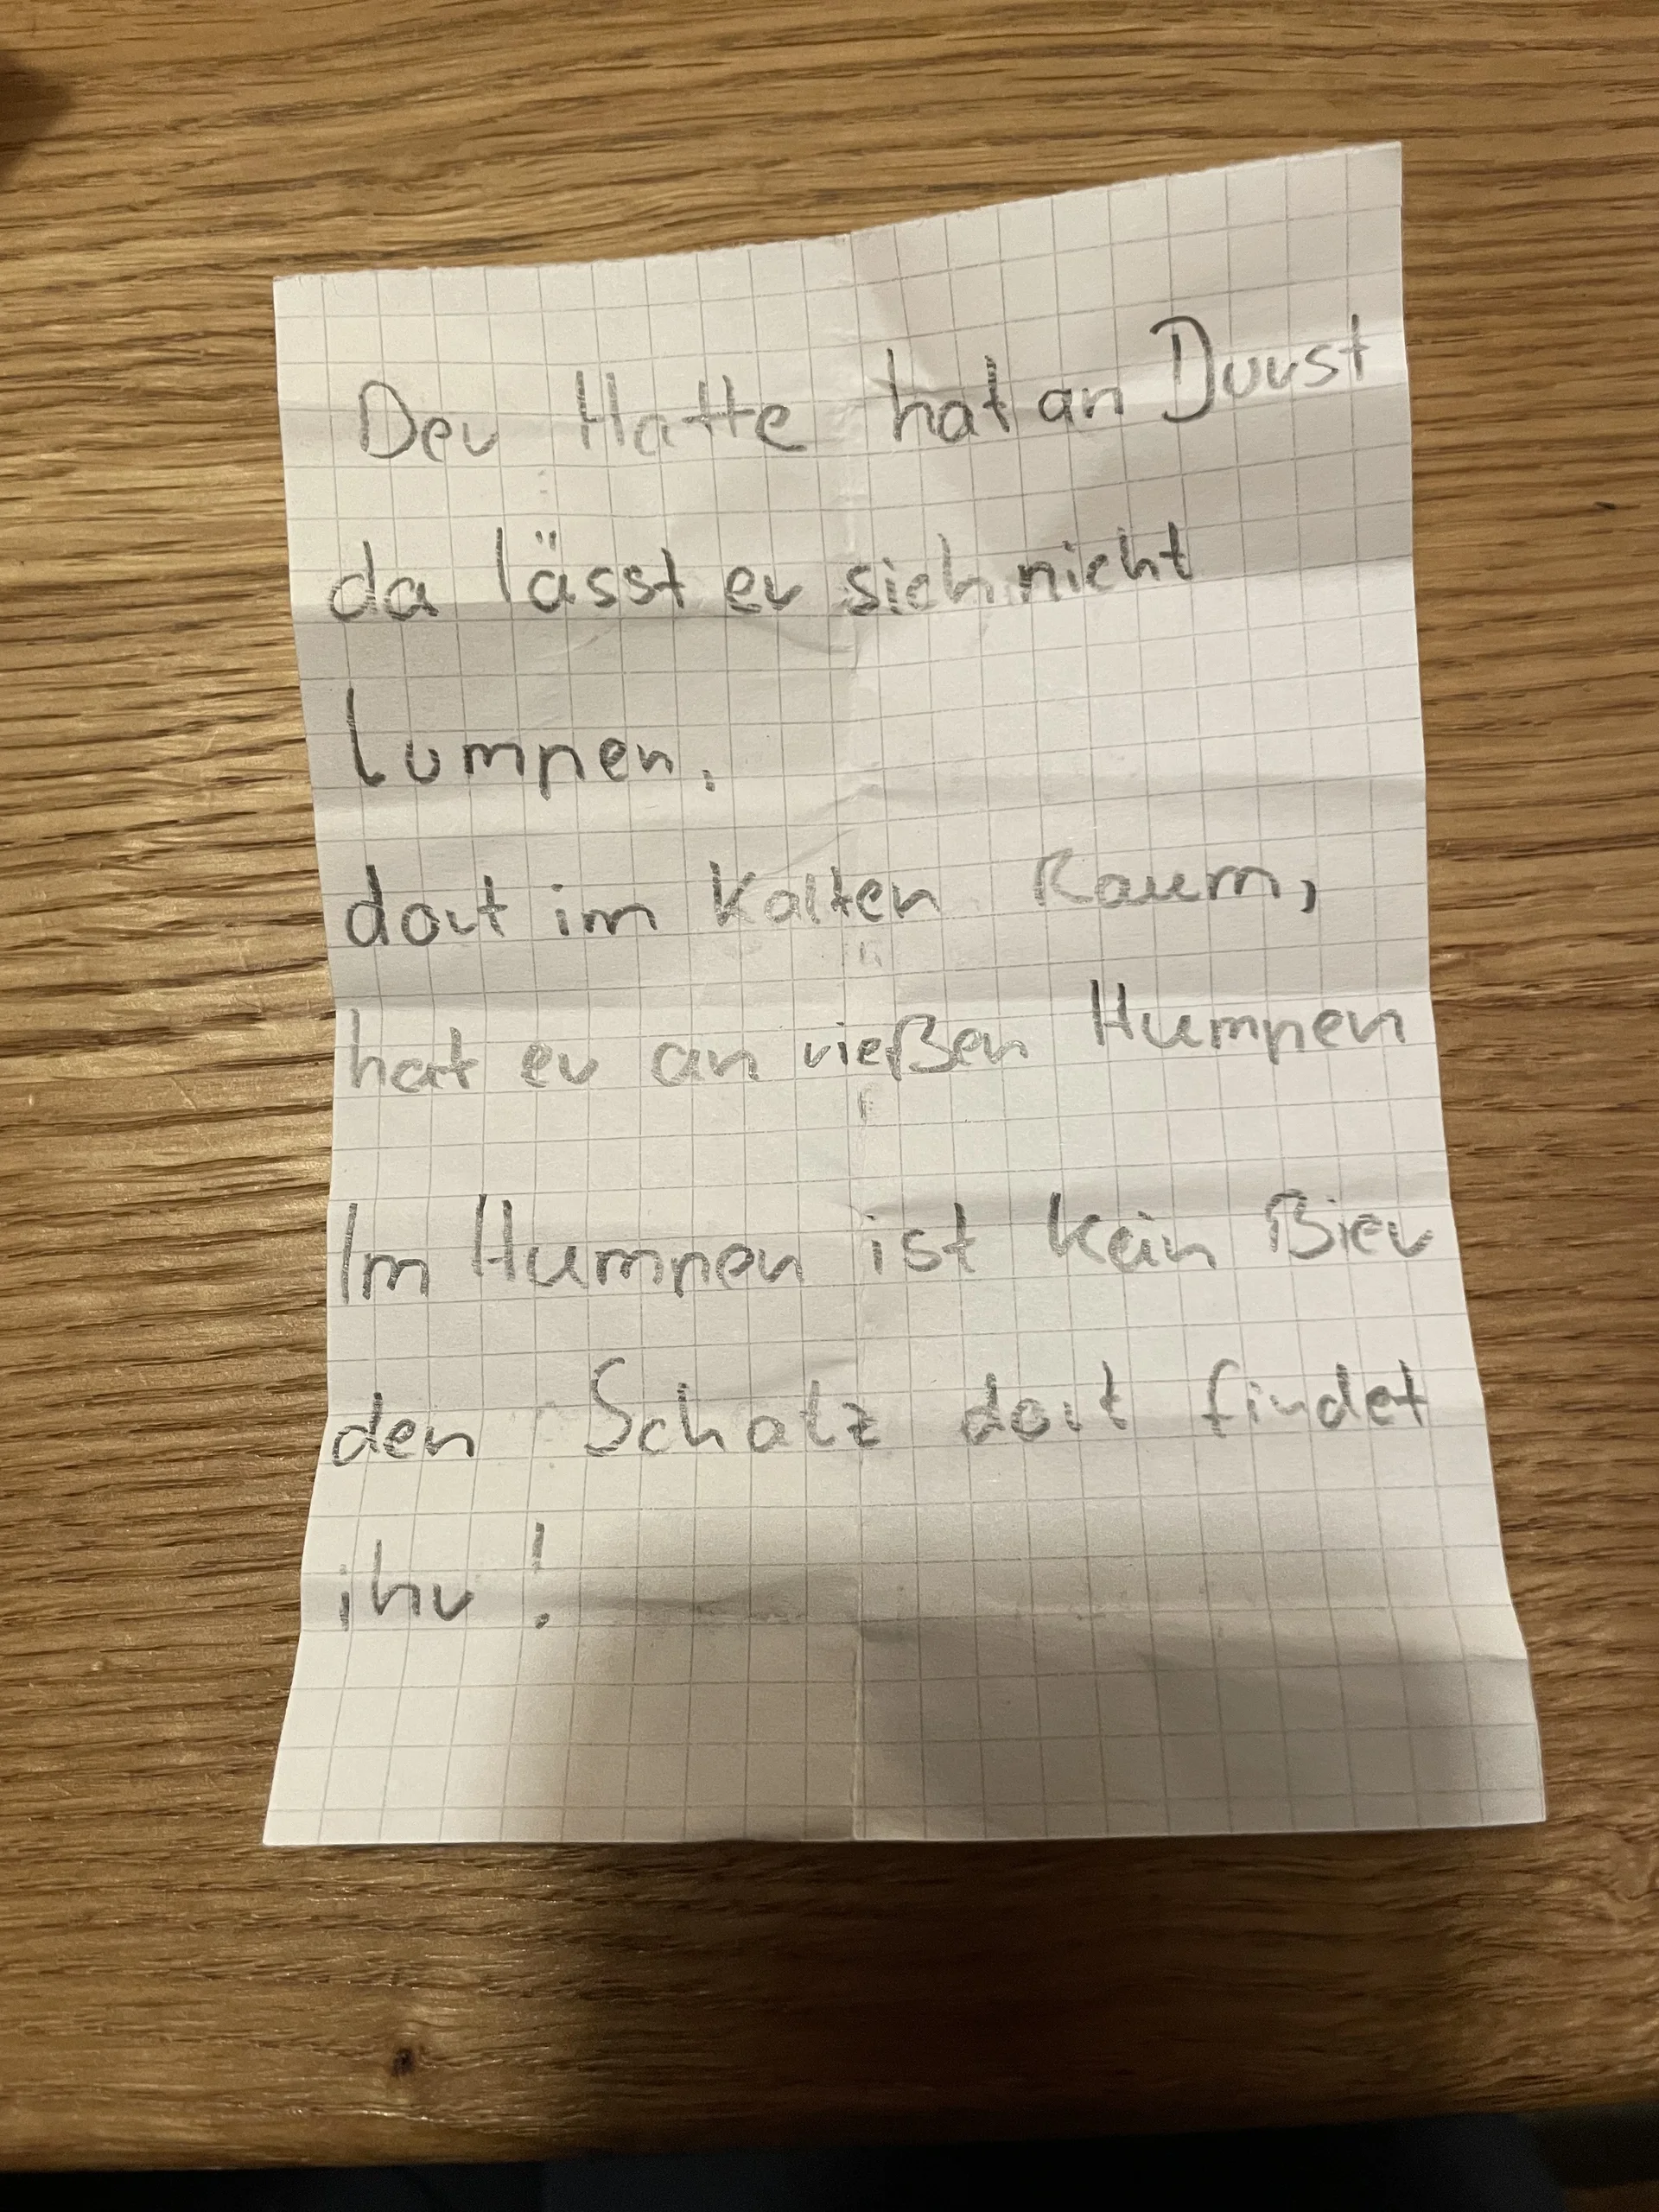 Der Hatte hat an Durst
da lässt er sich nicht
lumpen.
dort im Kalten Raum,
hat er an rießen Humpen
Im Humpen ist kein Bier
den Schatz dort findet
ihr!